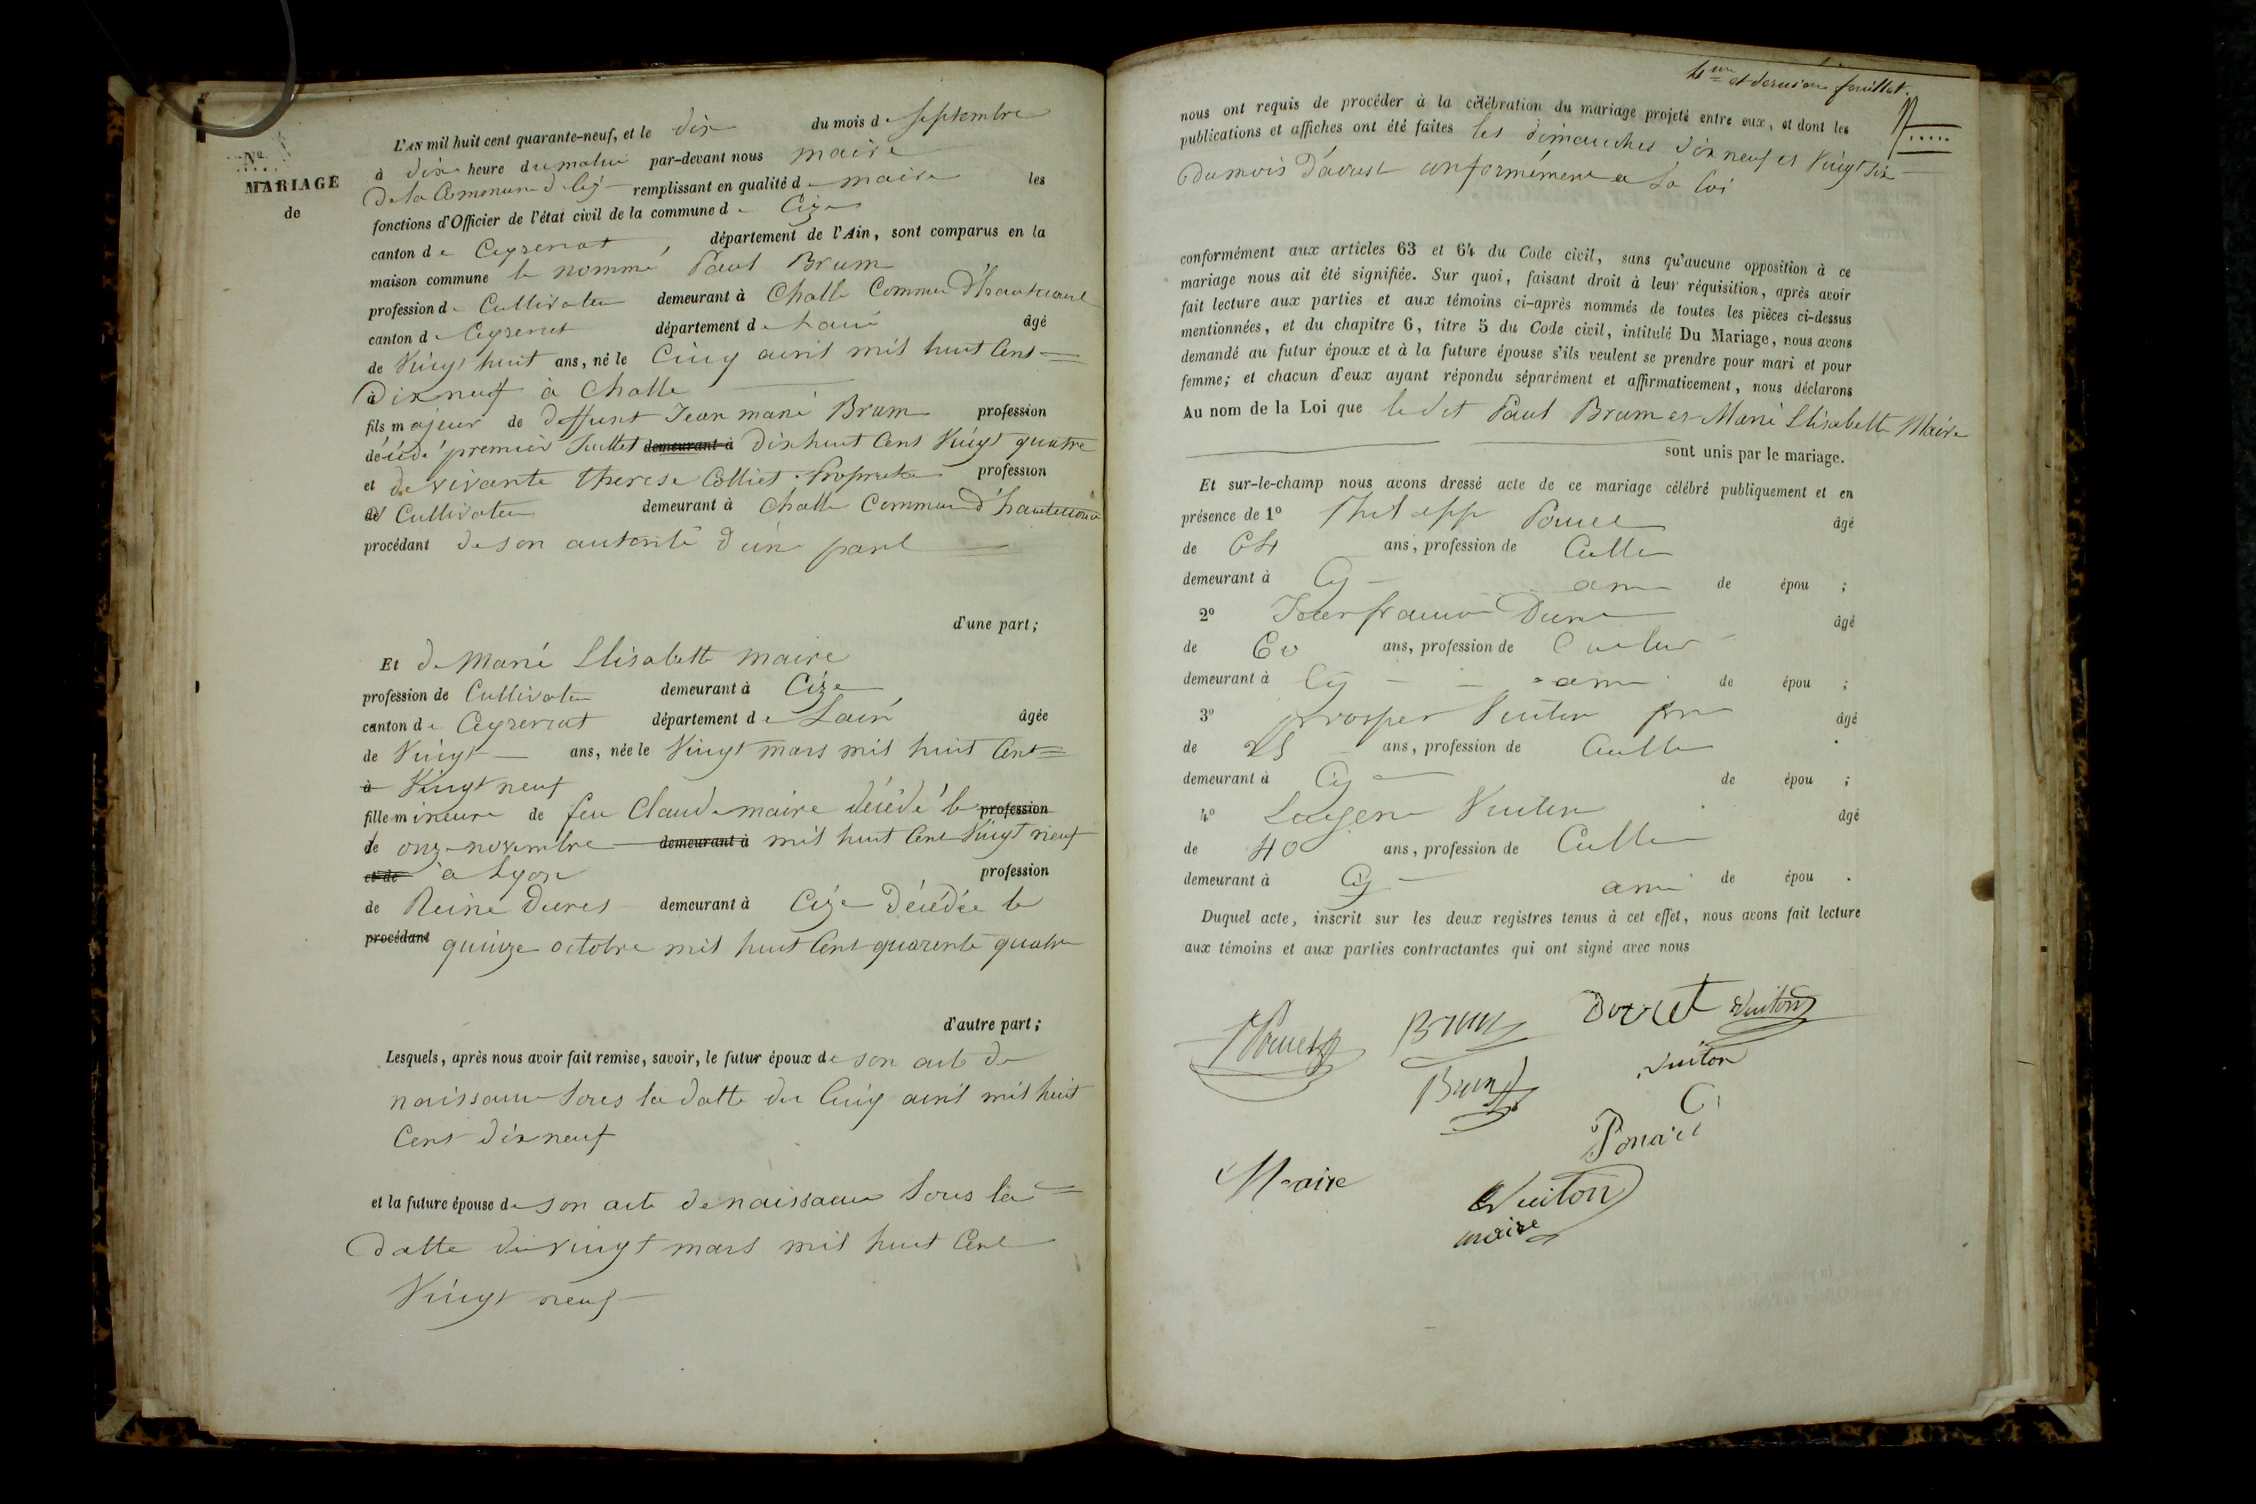 Nº
MARIAGE
de
L'AN mil huit cent quarante-neuf, et le dix du mois de septembre
à dix heure du matin par-devant nous maire
De la Commune de remplissant en qualité de maire les
fonctions d'Officier de l'état civil de la commune de Cize
canton de Ceyzeriat, département de l'Ain, sont comparus en la
maison commune le nommé Paul Brum
profession de Cultivateur demeurant à Challe Commune
canton de Ceyzeriat département de âgé
de Vingt huit ans, né le Cinq avril mil huit Cent
à Dix neuf à Challe
fils majeur de deffunt Jean marie Brum profession
décédé premier Juillet demeurant à dix huit Cent Vingt quatre
et de vivante therese Colliet profession
de Cultivateur demeurant à Challe Commune
procédant de son autorité d'une part
d'une part;
Et de Marie Elisabette maire
profession de Cultivateur demeurant à Cize
canton de Ceyzeriat département de Lain âgée
de Vingt ans, née le Vingt mars mil huit Cent
à Vingt neuf
fille mineure de feu Claude maire décédé le profession
de onze novembre demeurant à mil huit Cent Vingt neuf
et de à Lyon profession
de Reine demeurant à Cize Décédée le
procédant quinze octobre mil huit Cent quarente quatre
d'autre part;
Lesquels, après nous avoir fait remise, savoir, le futur époux de son acte de
naissance sous la datte du Cinq avril mil huit
Cent dix neuf
et la future épouse de son acte de naissance sous la
datte du vingt mars mil huit Cent
Vingt neuf
4me et dernier feuillet.
nous ont requis de procéder à la célébration du mariage projeté entre eux, et dont les
publications et affiches ont été faites les dimanches dix neuf et Vingt six
du mois d'aoust conformément a la loi
conformément aux articles 63 et 64 du Code civil, sans qu'aucune opposition à ce
mariage nous ait été signifiée. Sur quoi, faisant droit à leur réquisition, après avoir
fait lecture aux parties et aux témoins ci-après nommés de toutes les pièces ci-dessus
mentionnées, et du chapitre 6, titre 5 du Code civil, intitulé Du Mariage, nous avons
demandé au futur époux et à la future épouse s'ils veulent se prendre pour mari et pour
femme; et chacun d'eux ayant répondu séparément et affirmativement, nous déclarons
Au nom de la Loi que le dit Paul Brum et Marie Elisabette Maire
sont unis par le mariage.
Et sur-le-champ nous avons dressé acte de ce mariage célébré publiquement et en
présence de 1º âgé
de 64 ans, profession de
demeurant à ami de épou ;
2º Jean françois âgé
de 60 ans, profession de
demeurant à ami de épou ;
3º prosper Vuiton âgé
de 25 ans, profession de
demeurant à de épou ;
4º Vuiton âgé
de 40 ans, profession de
demeurant à ami de épou .
Duquel acte, inscrit sur les deux registres tenus à cet effet, nous avons fait lecture
aux témoins et aux parties contractantes qui ont signé avec nous
Brun Vuiton
Brun Vuiton
Maire
Vuiton
maire